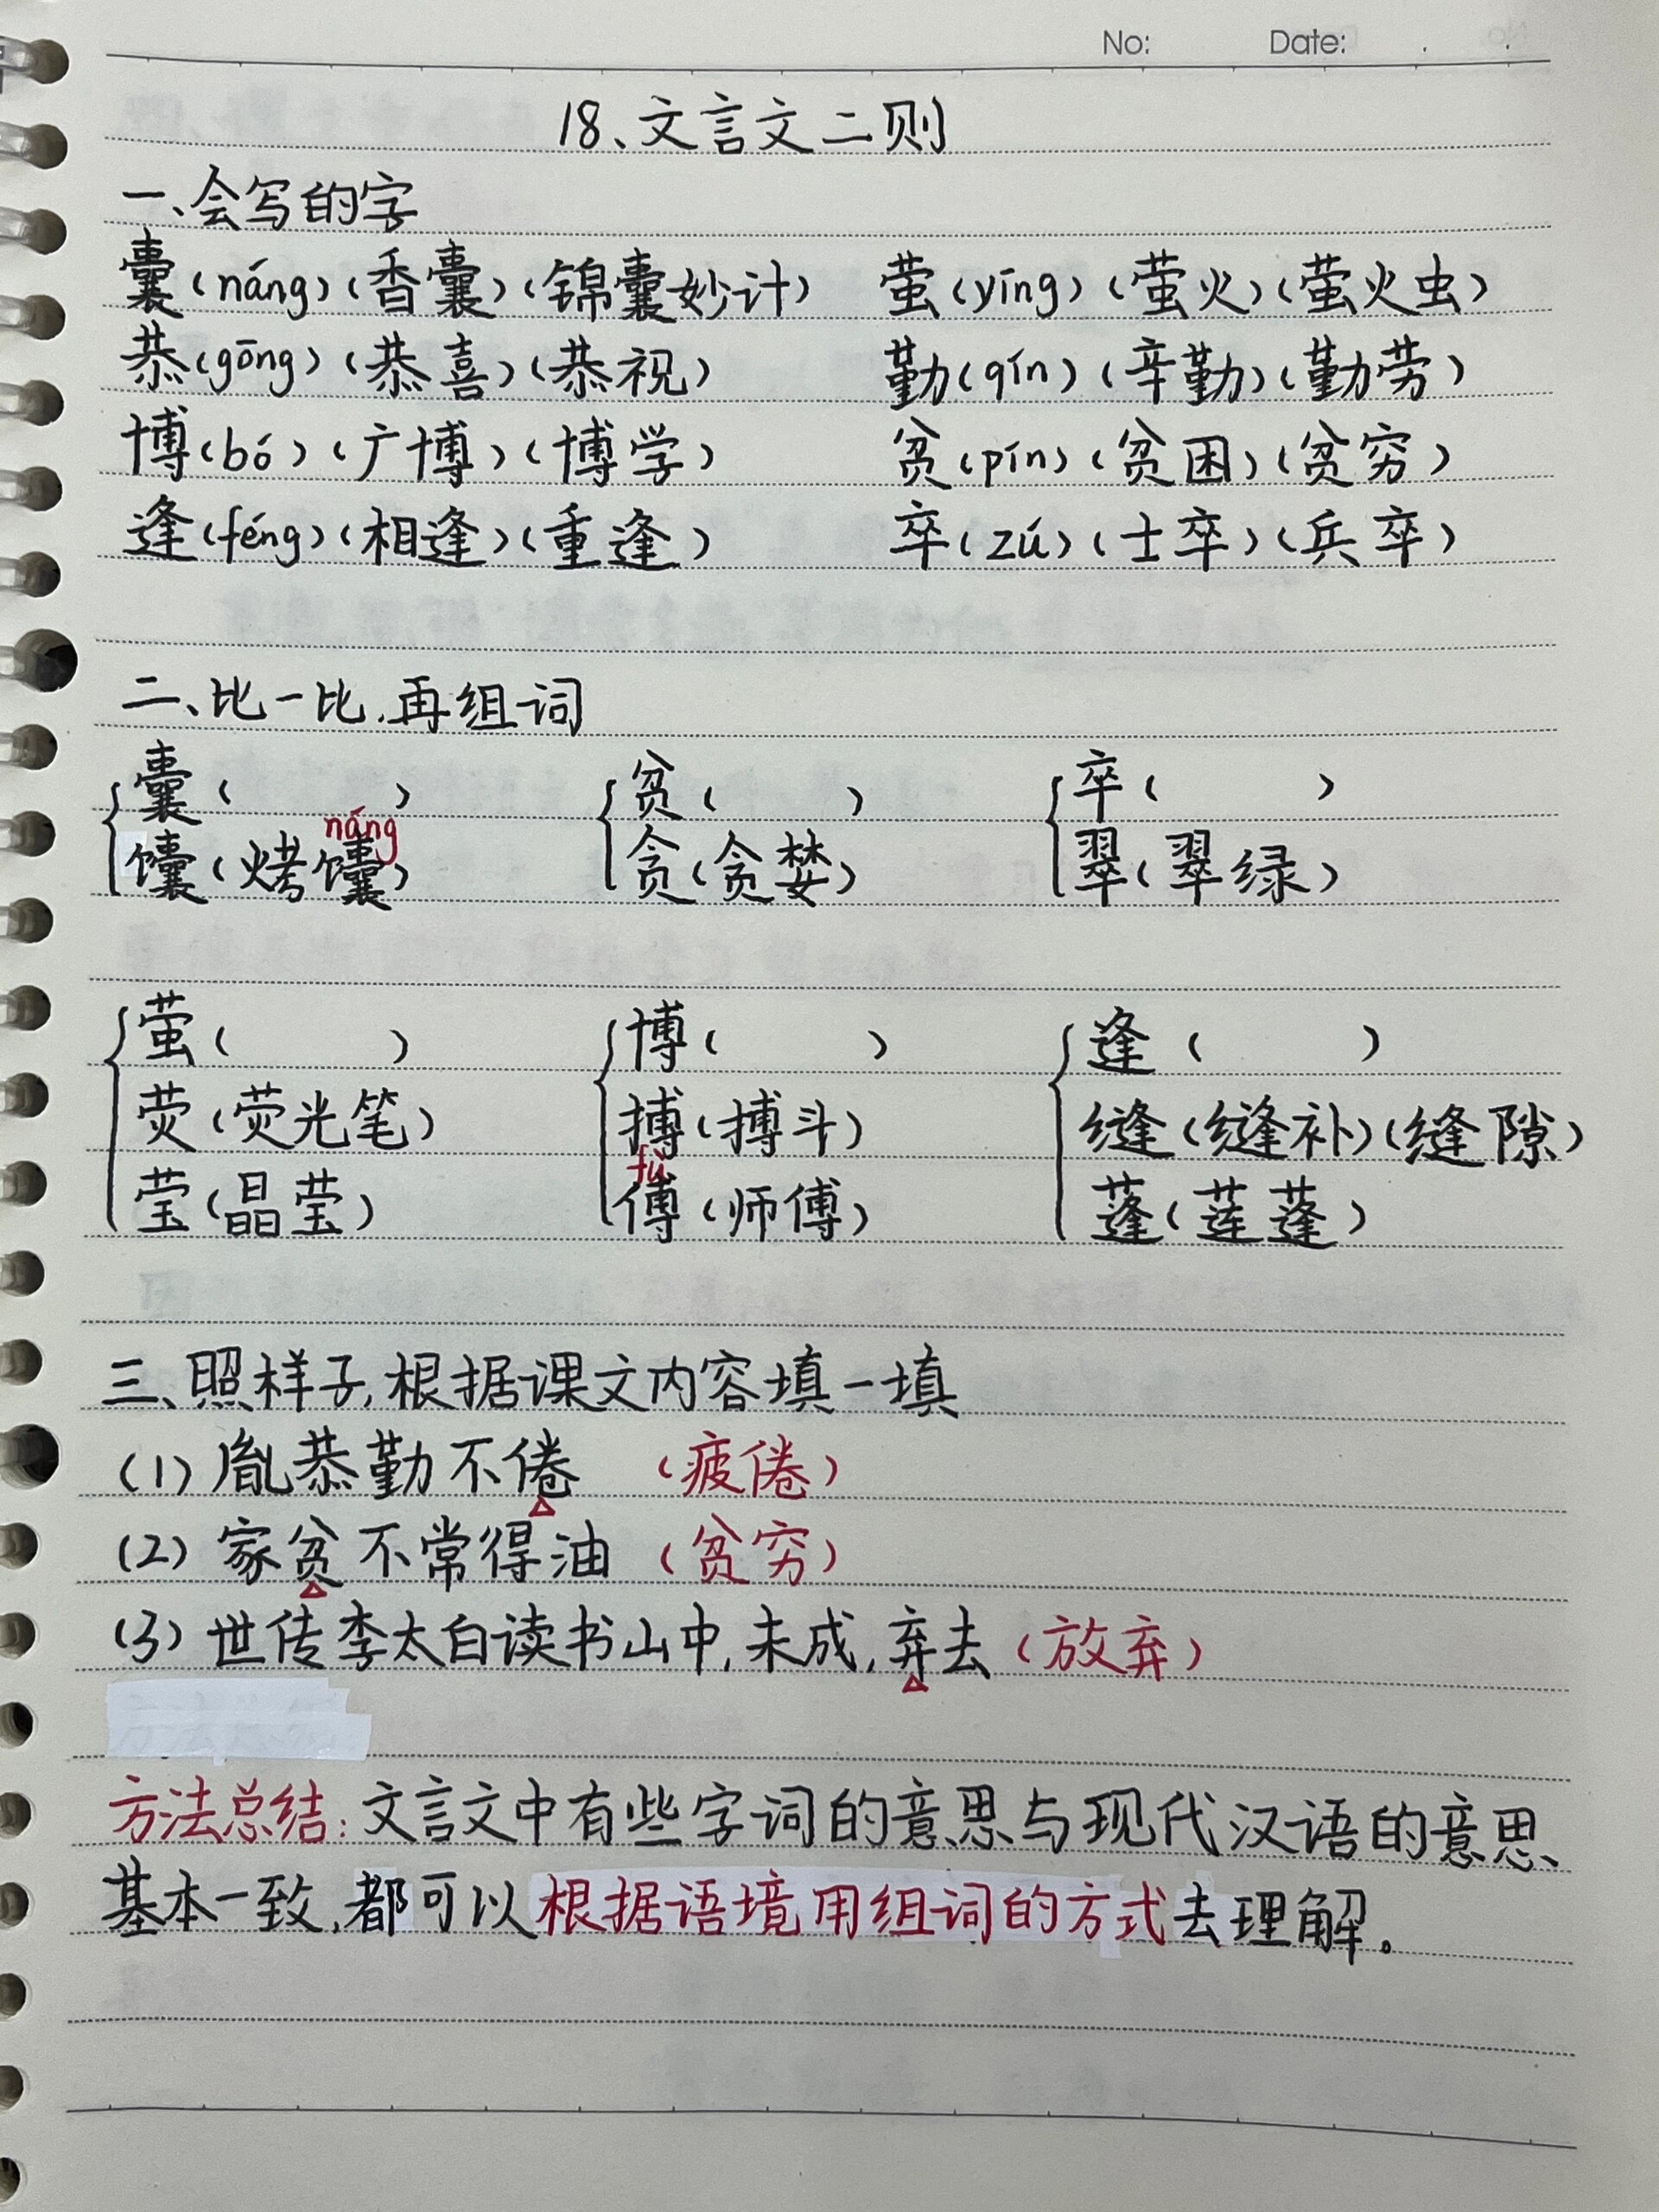 No: Date: . .
18、文言文二则
一、会写的字
囊(náng)(香囊)(锦囊妙计) 萤(yíng)(萤火)(萤火虫)
恭(gōng)(恭喜)(恭祝) 勤(qín)(辛勤)(勤劳)
博(bó)(广博)(博学) 贫(pín)(贫困)(贫穷)
逢(féng)(相逢)(重逢) 卒(zú)(士卒)(兵卒)
二、比一比,再组词
囊( ) 贫( ) 卒( )
náng
馕(烤馕) 贪(贪婪) 翠(翠绿)
萤( ) 博( ) 逢( )
荧(荧光笔) 搏(搏斗) 缝(缝补)(缝隙)
fù
莹(晶莹) 傅(师傅) 蓬(莲蓬)
三、照样子,根据课文内容填一填
(1) 胤恭勤不倦 (疲倦)
(2) 家贫不常得油 (贫穷)
(3) 世传李太白读书山中,未成,弃去(放弃)
方法总结:文言文中有些字词的意思与现代汉语的意思
基本一致,都可以根据语境用组词的方式去理解。